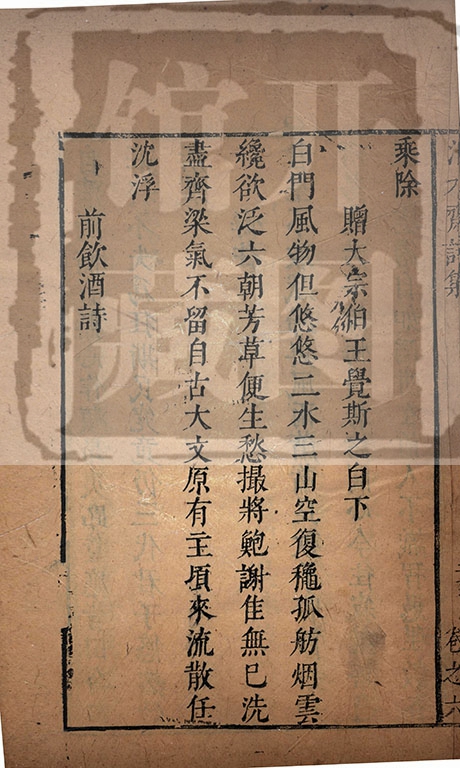 乘除
贈大宗伯王覺斯之白下
白門風物但悠悠二水三山空復穐孤舫烟雲
纔欲泛六朝芳草便生愁撮將鮑謝佳無巳洗
盡齊梁氣不留自古大文原有主頃來流散任
沈浮
前飲酒詩
卷之六